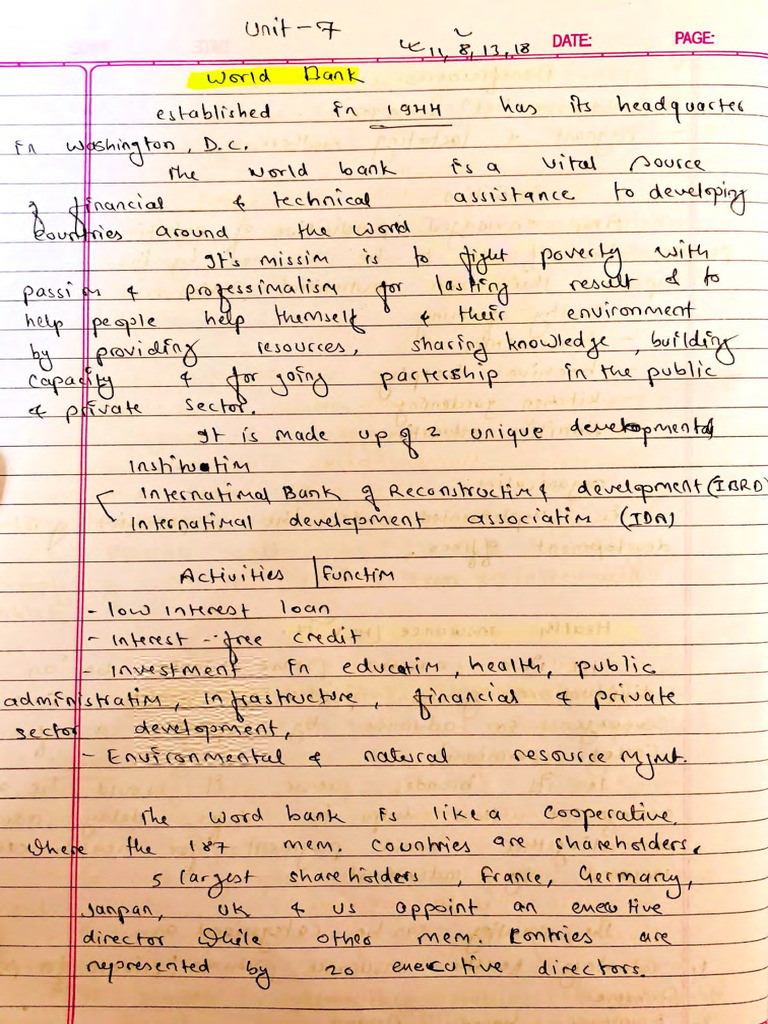 Unit - 7
11, 8, 13, 18 DATE: PAGE:
World Bank
established in 1944 has its headquarter
in Washington, D.C.
The World bank is a vital source
of financial & technical assistance to developing
countries around the world
It's missim is to fight poverty with
passion & professimalism for lasting result & to
help people help themself & their environment
by providing resources, sharing knowledge, building
capacity & for going partership in the public
& private sector.
It is made up of 2 unique developmental
Institutim
Internatimal Bank of Reconstructim & development (IBRD)
Internatimal development associatim (IDA)
Activities | Functim
- low interest loan
- Interest - free credit
- Investment in educatim, health, public
administratim, infrastructure, financial & private
sector development,
- Environmental & natural resource mgmt.
The word bank is like a cooperative,
where the 187 mem. countries are shareholders.
5 largest shareholders, France, Germany,
Janpan, UK & US appoint an execu tive
director while other mem. contries are
represented by 20 executive directors.